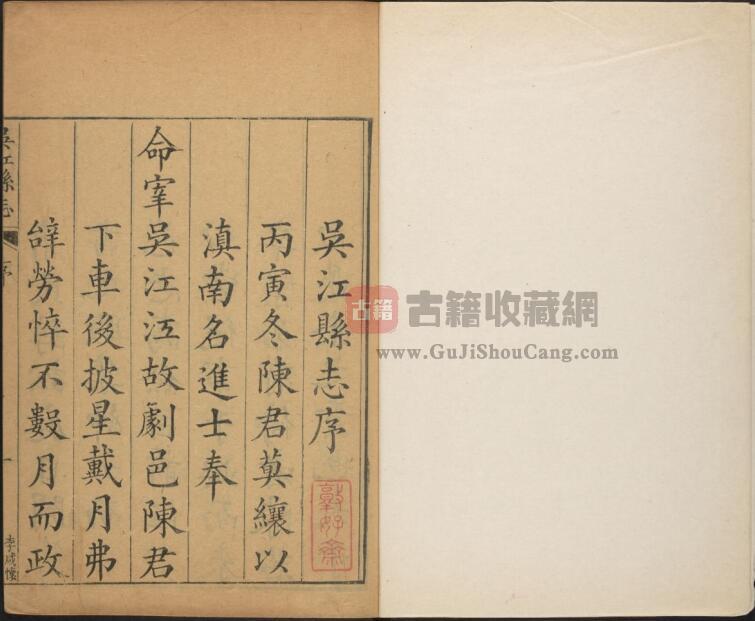 吳江縣志序
丙寅冬陳君莫纕以
滇南名進士奉
命宰吳江江故劇邑陳君
下車後披星戴月弗
辭勞悴不數月而政
吳江縣志
序
一
李成懷
古籍
古籍收藏網
www.GuJiShouCang.com